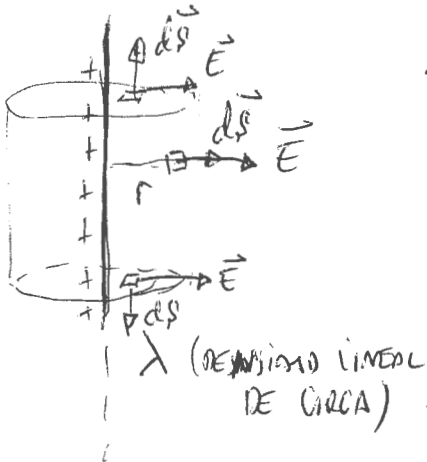 dS
E
dS
E
r
E
dS
λ (DENSIDAD LINEAL
DE CARGA)